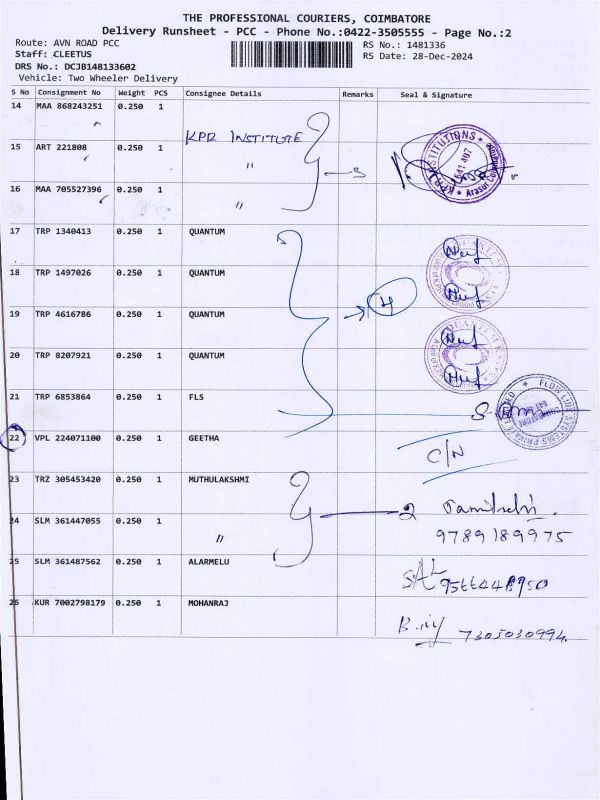 THE PROFESSIONAL COURIERS, COIMBATORE
Delivery Runsheet - PCC - Phone No.:0422-3505555 - Page No.:2
Route: AVN ROAD PCC
RS No.: 1481336
Staff: CLEETUS
RS Date: 28-Dec-2024
DRS No.: DCJB148133602
Vehicle: Two Wheeler Delivery
S No Consignment No Weight PCS Consignee Details Remarks Seal & Signature
14 MAA 868243251 0.250 1 KPR INSTITUTE
15 ART 221808 0.250 1 "
16 MAA 705527396 0.250 1 "
KPR INSTITUTIONS
641 407
Arasur
17 TRP 1340413 0.250 1 QUANTUM
18 TRP 1497026 0.250 1 QUANTUM
19 TRP 4616786 0.250 1 QUANTUM
4
20 TRP 8207921 0.250 1 QUANTUM
21 TRP 6853864 0.250 1 FLS
FLOW LINE SYSTEMS PRIVATE LIMITED
22 VPL 224071100 0.250 1 GEETHA C/N
23 TRZ 305453420 0.250 1 MUTHULAKSHMI
24 SLM 361447055 0.250 1 " 2
9789189975
25 SLM 361487562 0.250 1 ALARMELU
26 KUR 7002798179 0.250 1 MOHANRAJ
7305030994